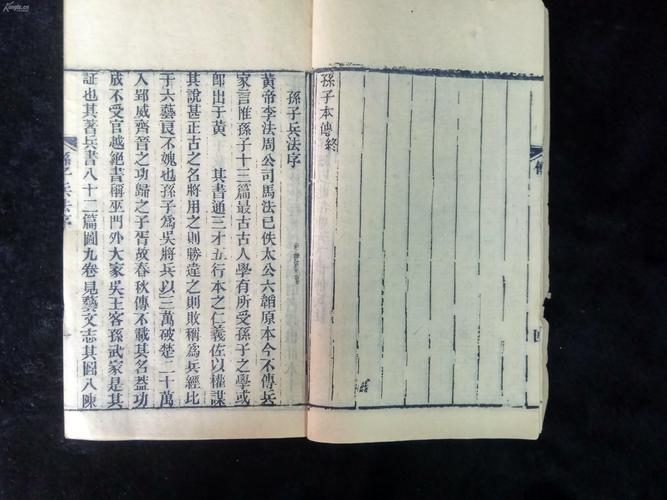 孫子本傳終
傳
四
孫子兵法序
黃帝李法周公司馬法已佚太公六韜原本今不傳兵
家言惟孫子十三篇最古古人學有所受孫子之學或
卽出于黃 其書通三才五行本之仁義佐以權謀
其說甚正古之名將用之則勝違之則敗稱爲兵經比
于六藝良不媿也孫子爲吳將兵以三萬破楚二十萬
入郢威齊晉之功歸之子胥故春秋傳不載其名葢功
成不受官越絕書稱巫門外大冢吳王客孫武冢是其
証也其著兵書八十二篇圖九卷見藝文志其圖八陳
孫子兵法序